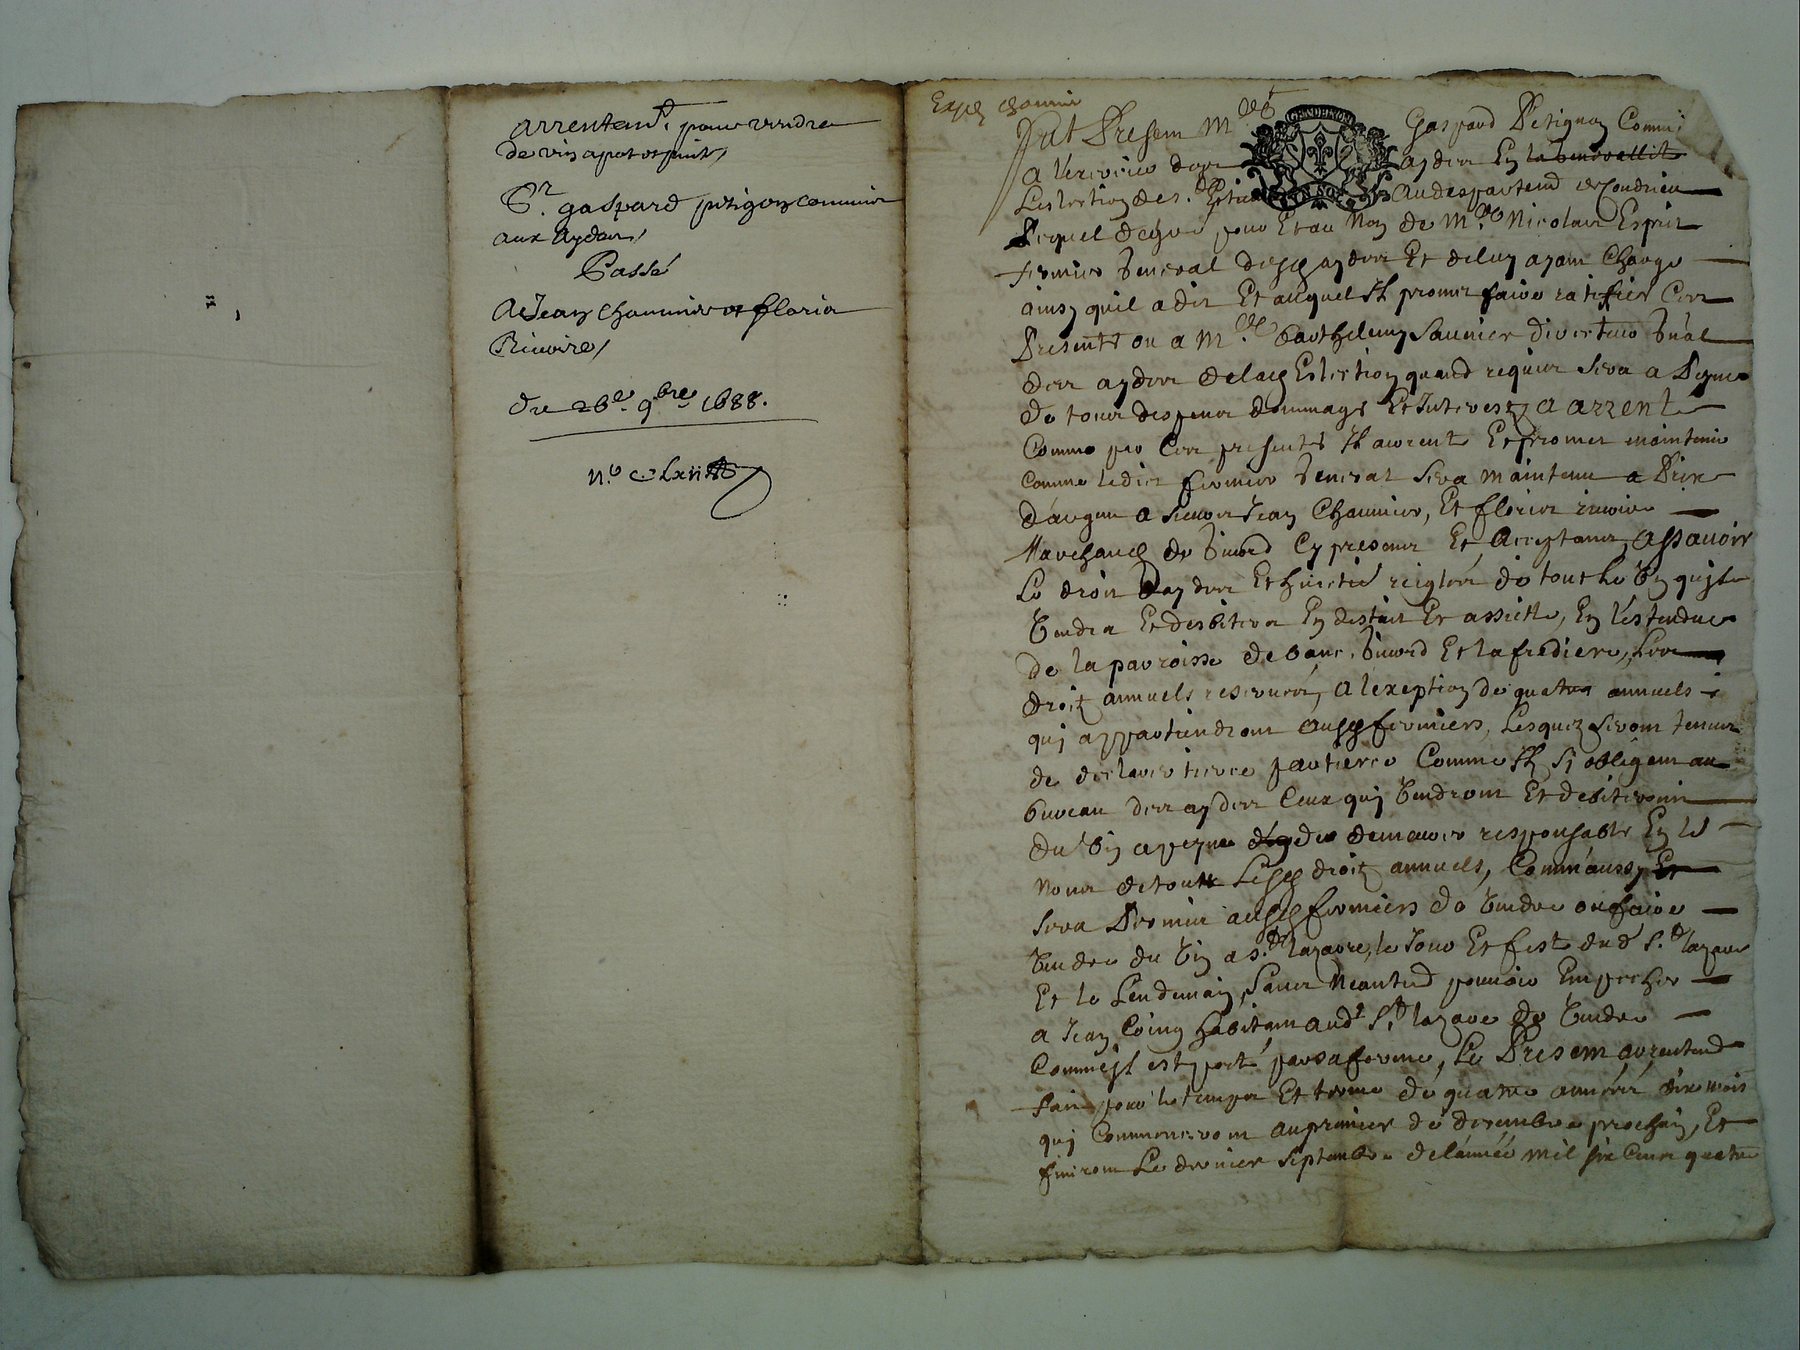 arrentemt. pour vendre
de vin a pot et pinte
Sr. gaspard petignon commis
aux aydes
Passé
A Jean chaumier et florin
Riuoire
du 26e. 9bre 1688.
n.o
Expé chaumier
Fut Present Me Gaspard Petignon Commis
a l'exercice des aydes En
Leslection de St. Estienne au despartemt de Condrieu
Lequel de gré pour Et au Nom de Me. Nicolas Esprit
fermier General desd aydes Et de luy ayant Charge
ainsy quil a dit Et auquel Il promet faire ratiffier Ces
Presents ou a Me. Barthelemy Saunier directeur Gnâl
des aydes de lad Eslection quand requis sera a Peyne
de tous despens dommages Et Interestz a arrenté
Comme par Ces presentes Il arrente Et promet maintenir
Comme ledit fermier General sera maintenu a Prix
d'argent a sieurs Jean Chaumier, Et florin riuoire
Marchands de Giuord Cy presents Et Acceptants, Assauoir
Le droit d'aydes Et huictié reiglés de tout le Vin quils
Vendra Et desbitera En destail Et assiette, En l'estendue
de la parroisse de bans, Giuord Et la frediere, Les
droitz annuels reserués, A l'exeption de quatre annuels
qui appartiendront ausd fermiers, Lesquelz seront tenus
de declarer tierce par tierce Comme Ilz s'y obligent au
bureau des aydes Ceux quj Vendront Et debiteront
du Vin a peyne de demeurer responsable En les
Noms de toutt Lesd droitz annuels, Comm'aussy
sera Permis ausd fermiers de Vendre ou faire
Vendre du Vin a St. lazare, le Jour Et feste dud St. lazare
Et le Lendemain, Sans Neantmt pouuoir Empecher
a Jean Coing habitant aud St. lazare de Vendre
Comm'il est porté par sa ferme, Le Present, arrentemt
fait pour le temps Et terme de quatre années dix mois
quj Commenceront au premier de decembre prochain, Et
finiront Le dernier Septembre de l'année mil six Cens quatre